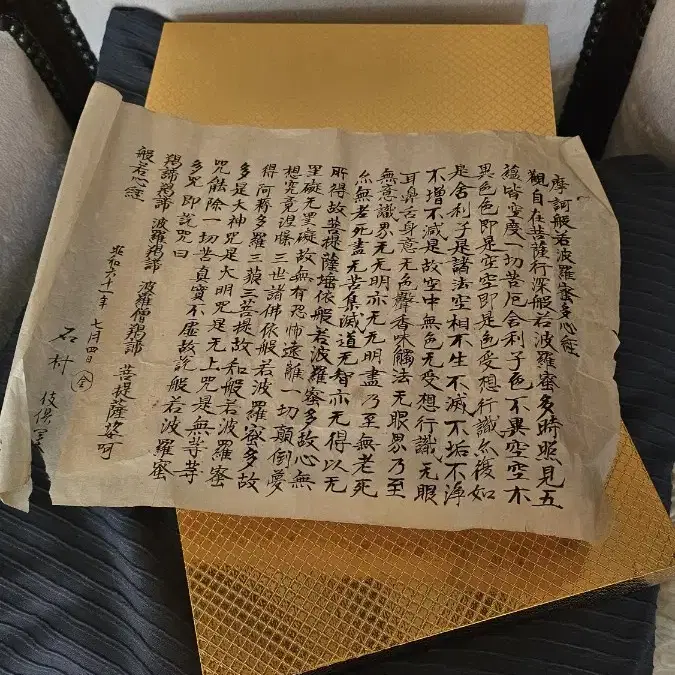 摩訶般若波羅蜜多心經
觀自在菩薩行深般若波羅蜜多時照見五
蘊皆空度一切苦厄舍利子色不異空空不
異色色即是空空即是色受想行識亦復如
是舍利子是諸法空相不生不滅不垢不淨
不增不減是故空中無色无受想行識无眼
耳鼻舌身意无色聲香味觸法无眼界乃至
無意識界无無明亦无無明盡乃至無老死
亦無老死盡无苦集滅道无智亦无得以无
所得故菩提薩埵依般若波羅蜜多故心無
罣礙无罣礙故無有恐怖遠離一切顛倒夢
想究竟涅槃三世諸佛依般若波羅蜜多故
得阿耨多羅三藐三菩提故知般若波羅蜜
多是大神咒是大明咒是无上咒是無等等
咒能除一切苦真實不虛故說般若波羅蜜
多咒即說咒曰
羯諦羯諦 波羅羯諦 波羅僧羯諦 菩提薩婆訶
般若心經
昭和六十一年 七月四日
石村